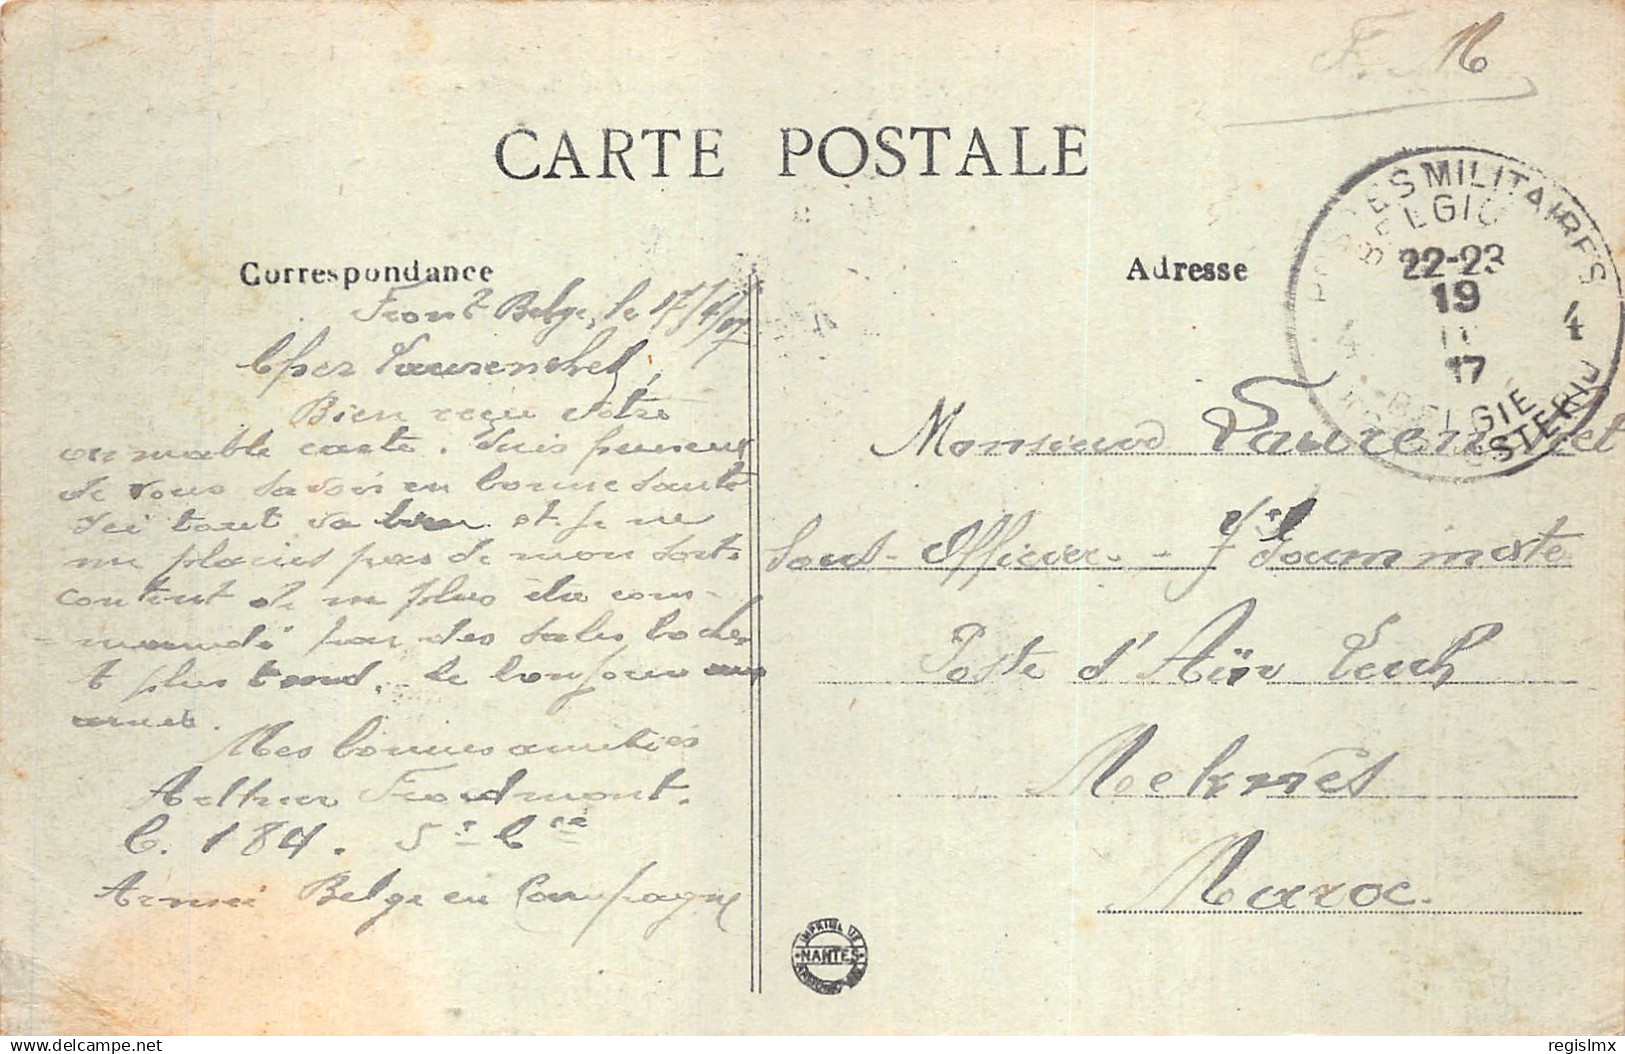 F. M
CARTE POSTALE
POSTES MILITAIRES
BELGIQ
22-23
19
17
4 4
BELGIE
Correspondance
Adresse
Front Belge, le 17/4/17
Cher Laurenchet,
Bien reçu votre
aimable carte. Suis heureux
de vous savoir en bonne santé
Ici tout va bien et je ne
me plains pas de mon sort
content de ne plus être com-
mandé par des sales boches
Mes bonnes amitiés
Arthur Froidmont.
C. 184. 5e Cie
Armée Belge en Campagne
Monsieur Laurenchet
Sous-Officier -
Poste d'Aïn
Meknès
Maroc.
NANTES
regislmx
delcampe.net